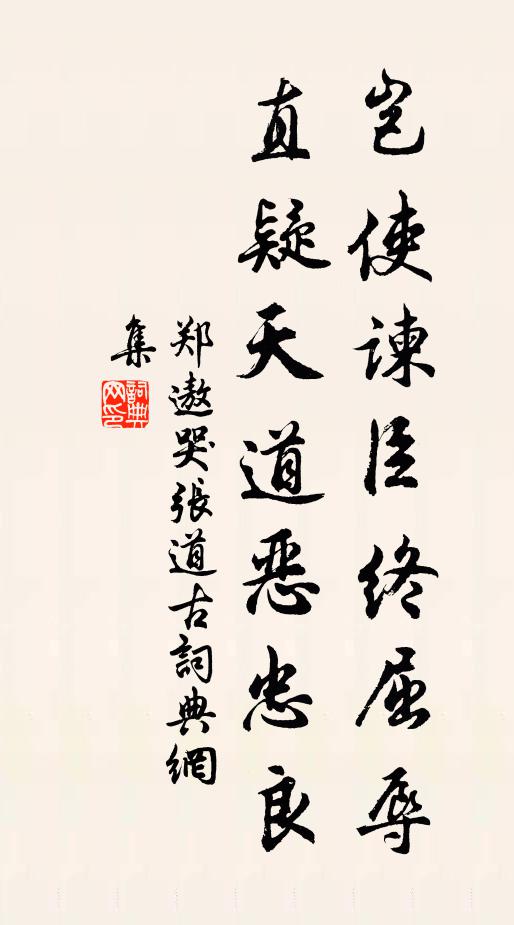 岂使谏臣终屈辱
直疑天道恶忠良
郑遨哭张道古詞典網
集
詞典
网印